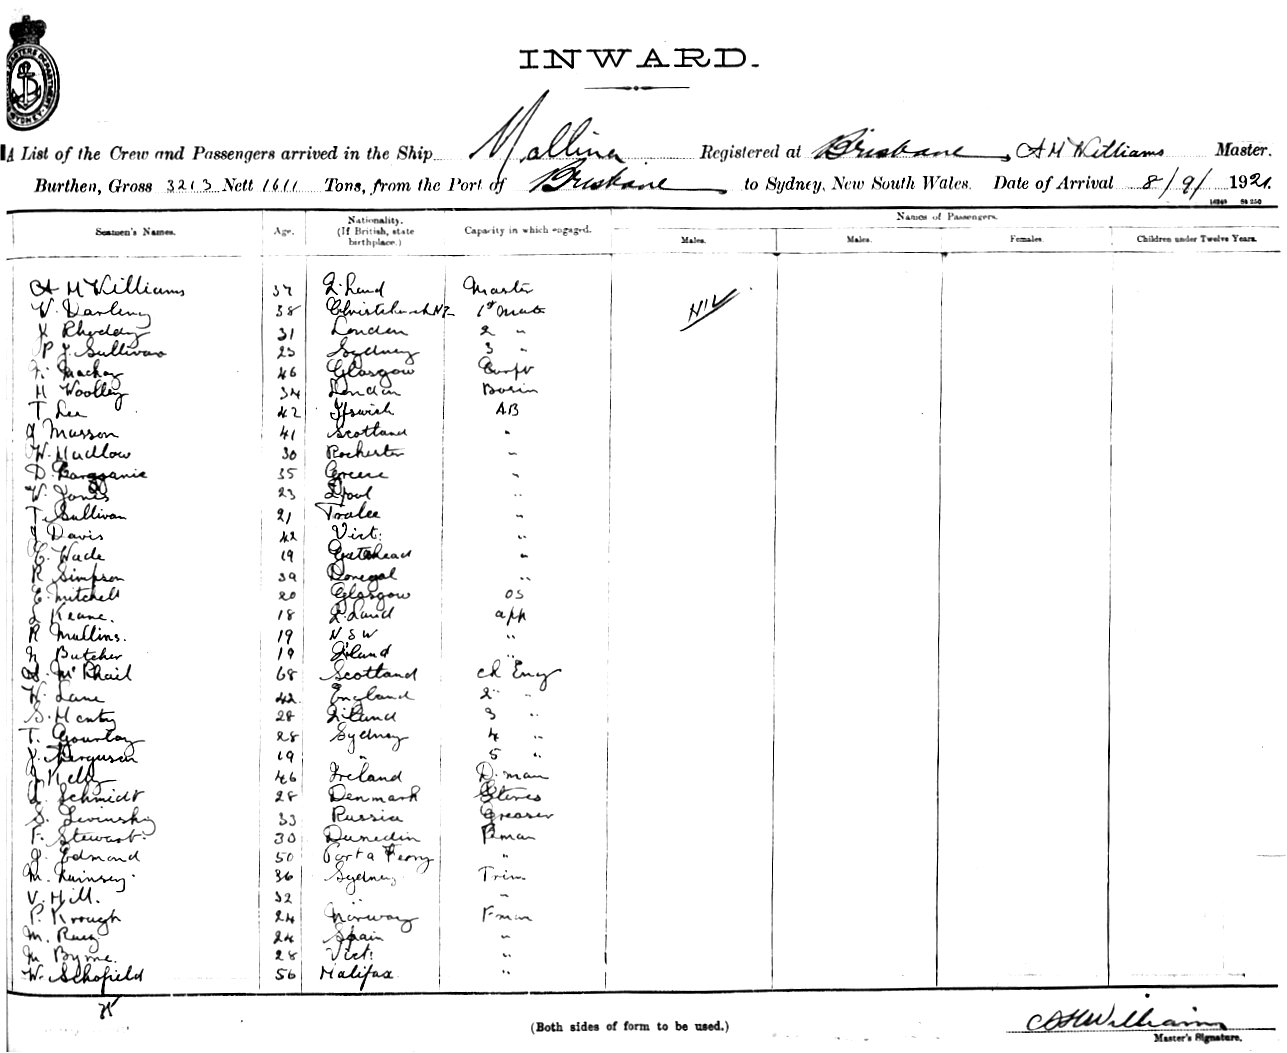 INWARD.
A List of the Crew and Passengers arrived in the Ship Mallina Registered at Brisbane, A H Williams Master.
Burthen, Gross 3213 Nett 1611 Tons, from the Port of Brisbane to Sydney, New South Wales. Date of Arrival 8/9/1921.
Seamen's Names. Age. Nationality. (If British, state birthplace.) Capacity in which engaged. Names of Passengers.
Males. Males. Females. Children under Twelve Years.
A H Williams 37 Z'land Master
W. Darling 38 Christchurch NZ 1st Mate NIL
Rhoddy 31 London 2 "
P J. Sullivan 23 Sydney 3 "
Mackay 46 Glasgow Carpt
H Woolley 34 London Bosun
T Lee 42 Ipswich AB
J Masson 41 Scotland "
W. Hadlow 30 Rochester "
D. 35 Greece "
W. Jones 23 L'pool "
T. Sullivan 21 Tralee "
J Davis 42 Vict: "
C. Wade 19 Gateshead "
R Simpson 39 Donegal "
E. Mitchell 20 Glasgow OS
L Keane. 18 Z'Land app
R Mullins. 19 NSW "
N Butcher 19 Z'land "
D. McPhail 68 Scotland ch Eng
W. Lane 42 England 2 "
S. Henty 28 Z'land 3 "
T. Gourlay 28 Sydney 4 "
J. Ferguson 19 " 5 "
J Kelly 46 Ireland D. man
A. Schmidt 28 Denmark Stores
S. Levinsky 33 Russia Greaser
F. Stewart. 30 Dunedin F.man
J. Edmond 50 Porta Ferry "
M. 36 Sydney Trim
V. Hill. 32 " "
P. Krough 24 Norway F man
M. Ruiz 24 Spain "
M Byrne. 28 Vict: "
W. Schofield 56 Halifax "
(Both sides of form to be used.)
A H Williams
Master's Signature.